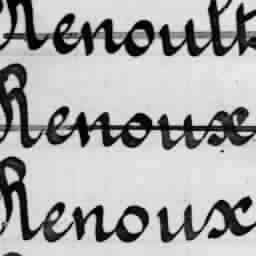 Renoult
Renoux
Renoux